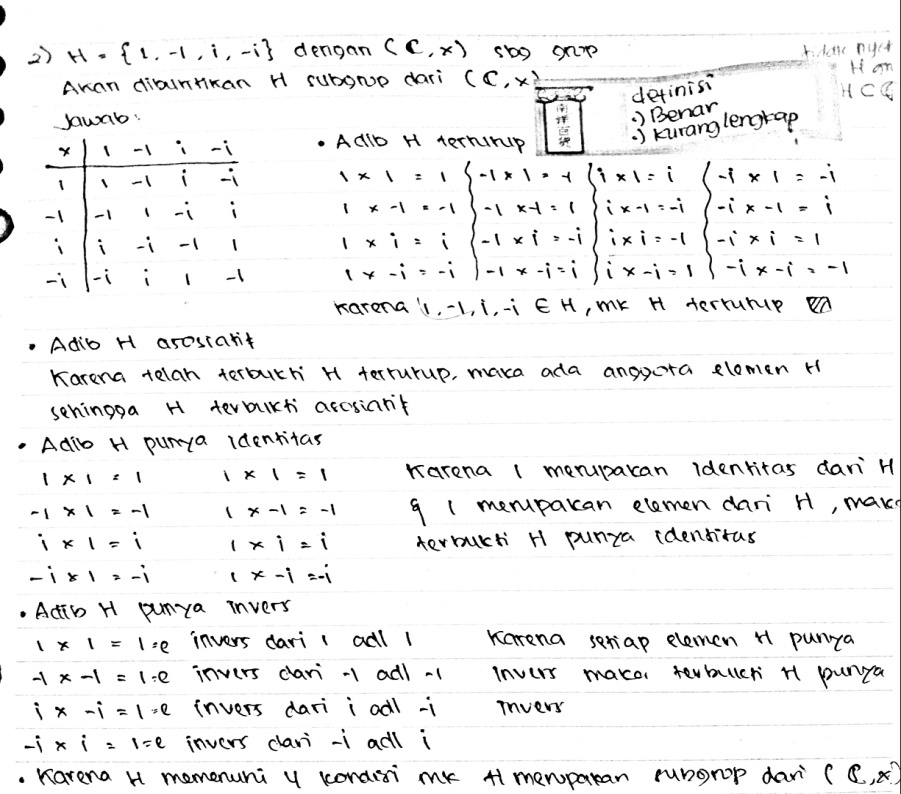 2) H = {1, -1, i, -i} dengan (ℂ, ×) sbg grup
Akan dibuktikan H subgrup dari (ℂ, ×)
H ⊂ ℂ
definisi
·) Benar
·) kurang lengkap
Jawab:
× | 1 -1 i -i
1 | 1 -1 i -i
-1 | -1 1 -i i
i | i -i -1 1
-i | -i i 1 -1
• Adib H tertutup
1 × 1 = 1 } -1 × 1 = -1 } i × 1 = i } -i × 1 = -i
1 × -1 = -1 } -1 × -1 = 1 } i × -1 = -i } -i × -1 = i
1 × i = i } -1 × i = -i } i × i = -1 } -i × i = 1
1 × -i = -i } -1 × -i = i } i × -i = 1 } -i × -i = -1
Karena 1, -1, i, -i ∈ H, mk H tertutup
• Adib H asosiatif
Karena telah terbukti H tertutup, maka ada anggota elemen H
sehingga H terbukti asosiatif
• Adib H punya identitas
1 × 1 = 1 1 × 1 = 1
-1 × 1 = -1 1 × -1 = -1
i × 1 = i 1 × i = i
-i × 1 = -i 1 × -i = -i
Karena 1 merupakan identitas dari H
& 1 merupakan elemen dari H, maka
terbukti H punya identitas
• Adib H punya invers
1 × 1 = 1 = e invers dari 1 adl 1
-1 × -1 = 1 = e invers dari -1 adl -1
i × -i = 1 = e invers dari i adl -i
-i × i = 1 = e invers dari -i adl i
Karena setiap elemen H punya
invers maka terbukti H punya
invers
• Karena H memenuhi 4 kondisi mk H merupakan subgrup dari (ℂ, ×)